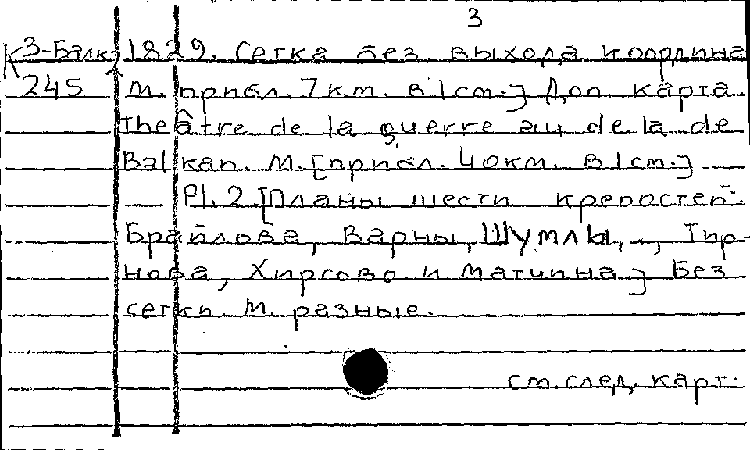 3
К 3-Балк 1829. Сетка без выхода координа
245 М. прибл. 7км. в 1см.] Доп карта.
Theâtre de la guerre au de la de
Balkan. М.[прибл. 40км. в 1см.]
Pl. 2 [Планы шести крепостей-
Браилова, Варны, Шумлы, Тир-
нова, Хирсово и Матчина] Без
сетки. М. разные.
см. след. карт.